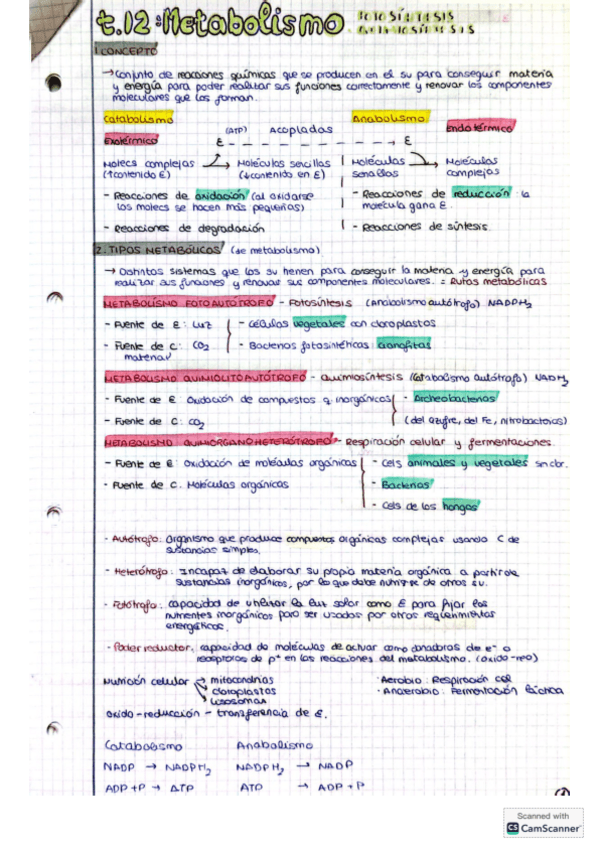 t.12: Metabolismo FOTOSÍNTESIS
QUIMIOSÍNTESIS
1 CONCEPTO
→ Conjunto de reacciones químicas que se producen en el su para conseguir materia
y energía para poder realizar sus funciones correctamente y renovar los componentes
moleculares que los forman.
Catabolismo Anabolismo
Exotérmico E - - (ATP) Acopladas - - → E Endotérmico
Molecs complejas → Moléculas sencillas | Moléculas → Moléculas
(↑contenido E) (↓contenido en E) | sencillas complejas
- Reacciones de oxidación (al oxidarse | - Reacciones de reducción: la
los molecs se hacen más pequeñas) | molécula gana E.
- Reacciones de degradación | - Reacciones de síntesis.
2. TIPOS METABÓLICOS (de metabolismo)
→ Distintos sistemas que los su tienen para conseguir la materia y energía para
realizar sus funciones y renovar sus componentes moleculares. = Rutas metabólicas
METABOLISMO FOTOAUTÓTROFO - Fotosíntesis (Anabolismo autótrofo) NADPH2
- Fuente de E: Luz - Células vegetales con cloroplastos
- Fuente de C: CO2 - Bacterias fotosintéticas: cianofitas
materia
METABOLISMO QUIMIOLITOAUTÓTROFO - Quimiosíntesis (Catabolismo autótrofo) NADH2
- Fuente de E: Oxidación de compuestos q. inorgánicos - Archeobacterias
- Fuente de C: CO2 (del azufre, del Fe, nitrobacterias)
METABOLISMO QUIMIORGANOHETERÓTROFO - Respiración celular y fermentaciones.
- Fuente de E: Oxidación de moléculas orgánicas - Cels animales y vegetales sin clor.
- Fuente de C: Moléculas orgánicas - Bacterias
- Cels de los hongos
- Autótrofo: Organismo que produce compuestos orgánicos complejas usando C de
sustancias simples.
- Heterótrofo: Incapaz de elaborar su propia materia orgánica a partir de
sustancias inorgánicos, por lo que debe nutrirse de otros su.
- Fotótrofo: capacidad de utilizar la luz solar como E para fijar los
nutrientes inorgánicos para ser usados por otros requerimientos
energéticos.
- Poder reductor: capacidad de moléculas de actuar como donadoras de e- o
receptoras de p+ en las reacciones del metabolismo. (oxido-red)
Nutrición celular → mitocondrias · Aerobio: Respiración cel
→ cloroplastos · Anaerobio: Fermentación láctica
→ lisosomas
Oxido-reducción - transferencia de E.
Catabolismo Anabolismo
NADP → NADPH2 NADPH2 → NADP
ADP + P → ATP ATP → ADP + P
1
Scanned with
CS CamScanner